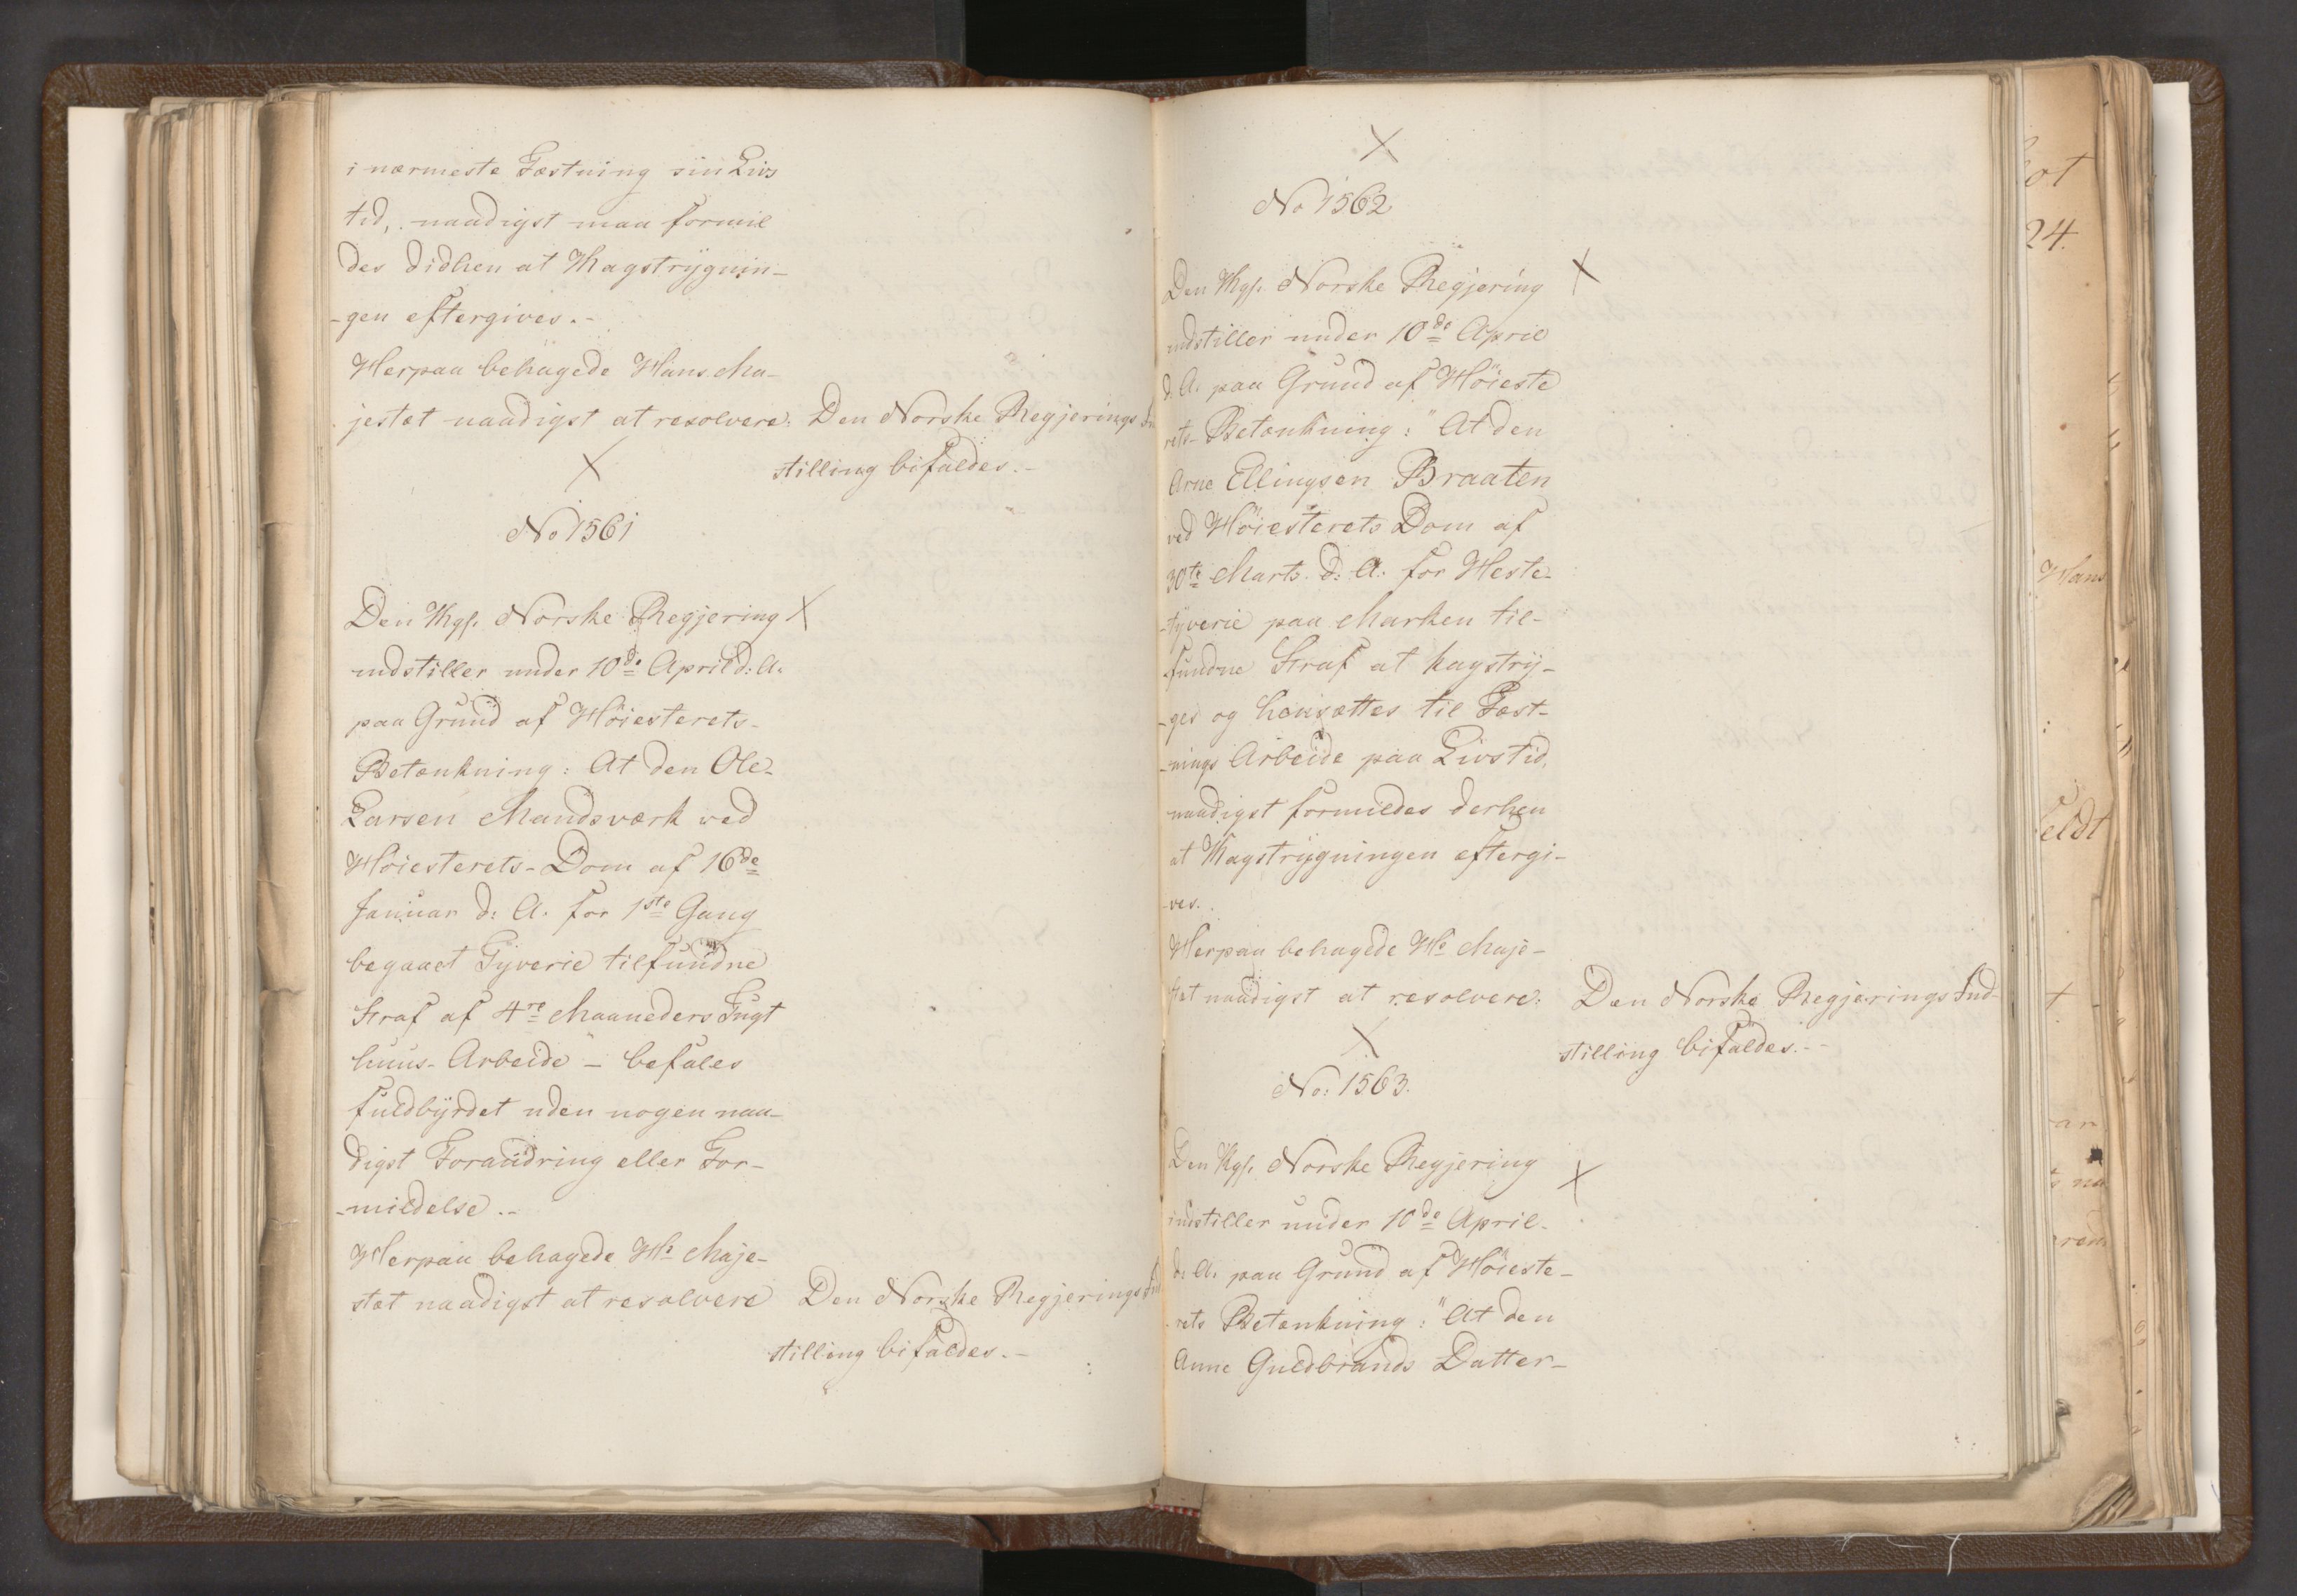 i nærmeste Fæstning sin Livs
tid, naadigst maa formil
des didhen at Kagstrygnin-
-gen eftergives.-
Herpaa behagede Hans Ma-
jestæt naadigst at resolvere: Den Norske Regjerings In
stilling bifaldes.-
X
No 1561
Den Kgl. Norske Regjering X
indstiller under 10de April d: A.
paa Grund af Höiesterets-
Betænkning: At den Ole
Larsen Mandsværk ved
Höiesterets-Dom af 16de
Januar d: A. for 1ste Gang
begaaet Tyverie tilfundne
Straf af 4re Maaneders Tugt
huus-Arbeide - befales
fuldbyrdet uden nogen naa-
digst Forandring eller For-
-mildelse.-
Herpaa behagede Hs Maje-
stæt naadigst at resolvere Den Norske Regjerings Ind
stilling bifaldes.-
X
No 1562
Den Kgl. Norske Regjering X
indstiller under 10de April
d. A. paa Grund af Höieste
rets-Betænkning: "At den
Arne Ellingsen Braaten
ved Höiesterets Dom af
30te Marts d: A: for Heste-
-tyverie paa Marken til-
-fundne Straf at kagstry-
-ges og hensættes til Fæst-
-nings Arbeide paa Livstid,
naadigst formildes derhen
at Kagstrygningen eftergi-
-ves.
Herpaa behagede Hs Maje-
stæt naadigst at resolvere: Den Norske Regjerings Ind-
stilling bifaldes.-
X
No: 1563.
Den Kgl. Norske Regjering X
indstiller under 10de April
d: A. paa Grund af Höieste-
rets Betænkning: "At den
Anne Guldbrands Datter-
24.
Hans